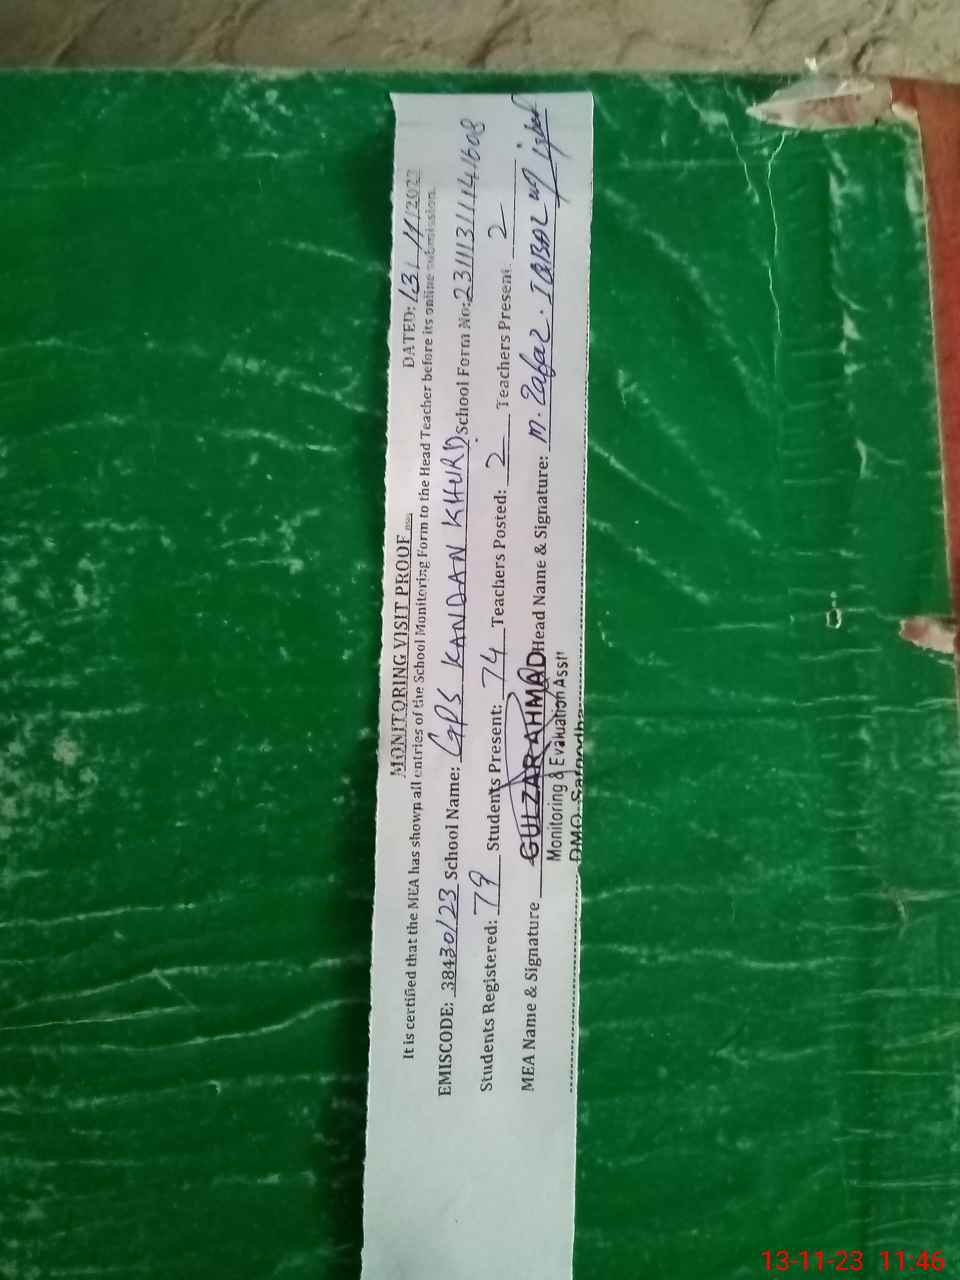 MONITORING VISIT PROOF
DATED: 13/11/2023
It is certified that the MEA has shown all entries of the School Monitoring Form to the Head Teacher before its online submission.
EMISCODE: 38430123 School Name: GPS KANDAN KHURD School Form No: 231113111141608
Students Registered: 79 Students Present: 74 Teachers Posted: 2 Teachers Present: 2
MEA Name & Signature GULZAR AHMAD Head Name & Signature: M. Zafar. IQBAL
Monitoring & Evaluation Asstt
DMO Sargodha
13-11-23 11:46